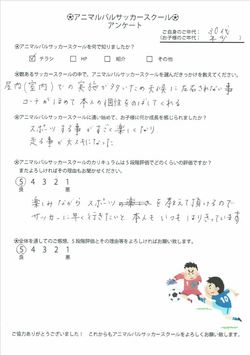 ⚽アニマルパルサッカースクール⚽
アンケート
ご自身のご年代: 30代
(お子様のご年代: )
※アニマルパルサッカースクールを何で知りましたか?
☑ チラシ □ HP □ 紹介 □ その他
※数あるサッカースクールの中で、アニマルパルサッカースクールを選んだきっかけを教えてください。
屋内(室内)での実施が多いため天候に左右されない事
コーチがほめて本人の個性をのばしてくれる
※アニマルパルサッカースクールに通い始めて、お子様に何か成長を感じられましたか?
スポーツする事がすごく楽しくなり
走る事が大スキになった
※アニマルパルサッカースクールのカリキュラムは5段階評価でどのくらいの評価ですか?
またよろしければその理由もお聞かせください。
⑤ 4 3 2 1
良 悪
楽しみながらスポーツの を教えて頂けるので
サッカーに早く行きたいと本人もいつもはりきっています
※全体を通してのご感想、5段階評価とその理由等をよろしければお願い致します。
⑤ 4 3 2 1
良 悪
ご協力ありがとうございました! これからもアニマルパルサッカースクールをよろしくお願い致します。